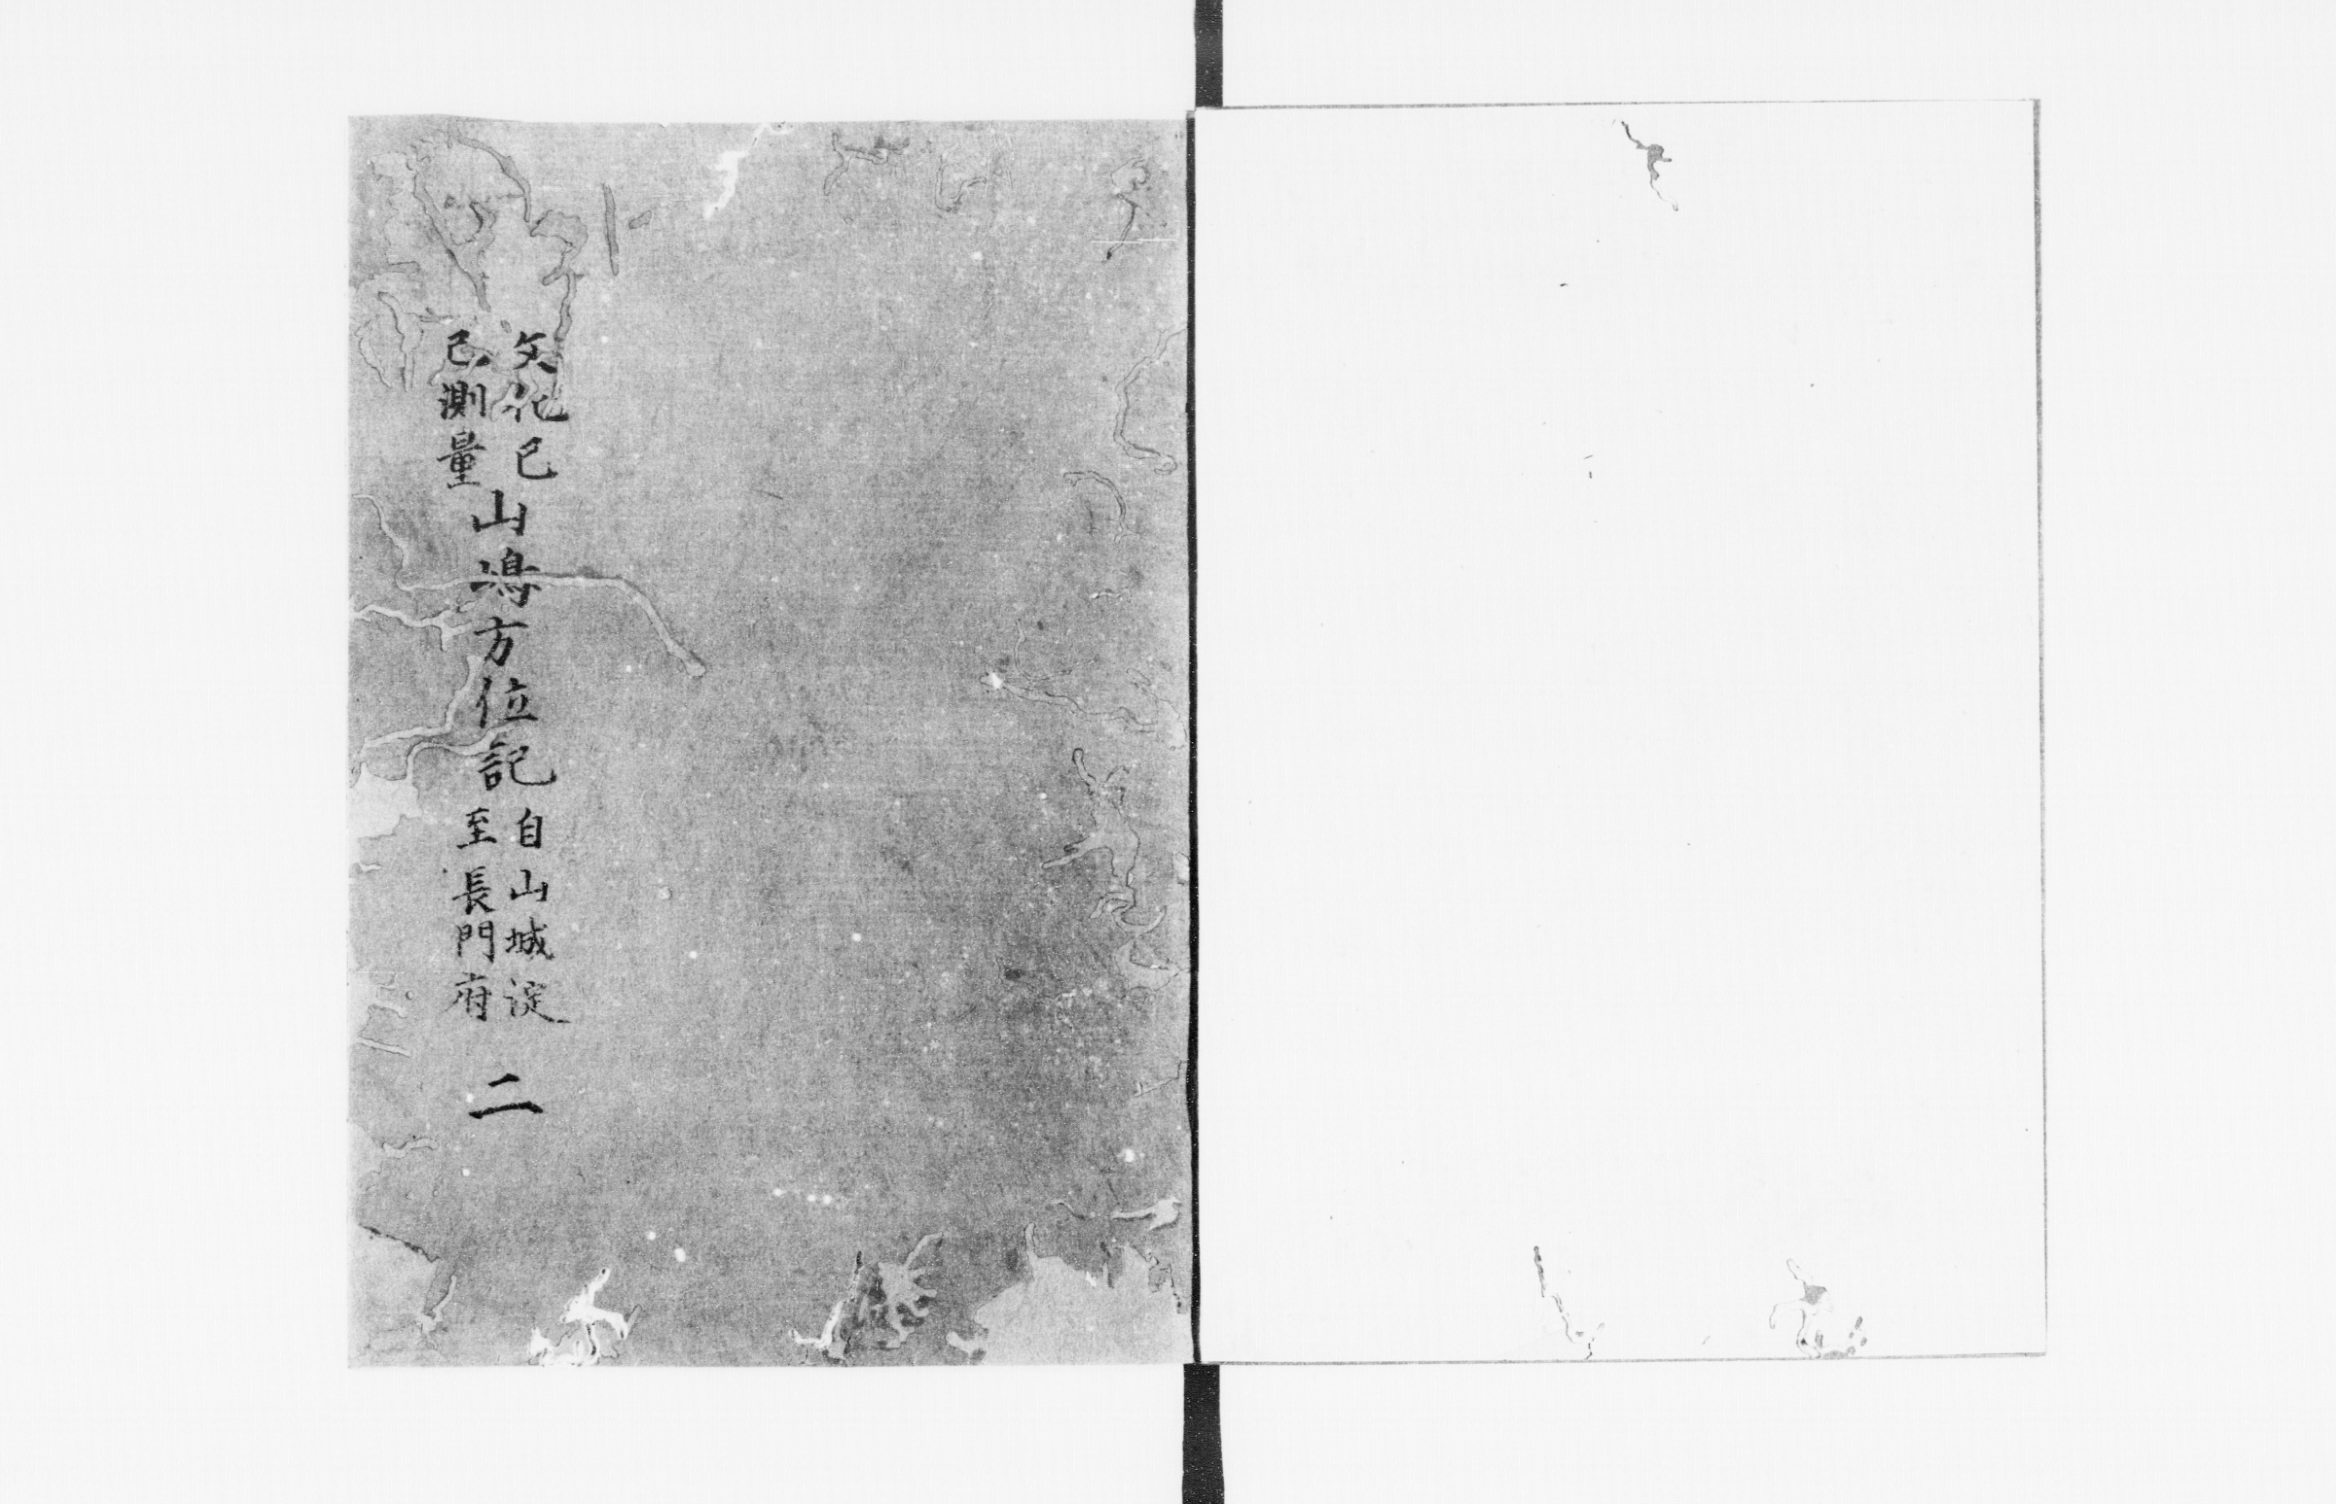 文化己
巳測量
山嶋方位記
自山城淀
至長門府
二